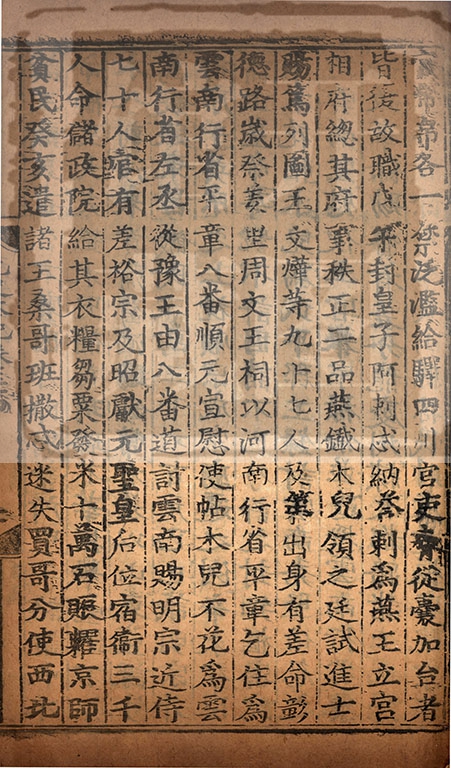 幣帛各一禁泛濫給驛四川官吏脅從囊加台者
皆復故職戊午封皇子阿剌忒納荅剌爲燕王立宮
相府總其府事秩正二品燕鐵木兒領之廷試進士
賜篤列圖王文燁等九十七人及第出身有差命彰
德路歲祭羑里周文王祠以河南行省平章乞住爲
雲南行省平章八番順元宣慰使帖木兒不花爲雲
南行省左丞從豫王由八番道討雲南賜明宗近侍
七十人官有差裕宗及昭獻元聖皇后位宿衛三千
人命儲政院給其衣糧芻粟發米十萬石賑糶京師
貧民癸亥遣諸王桑哥班撒忒迷失買哥分使西北